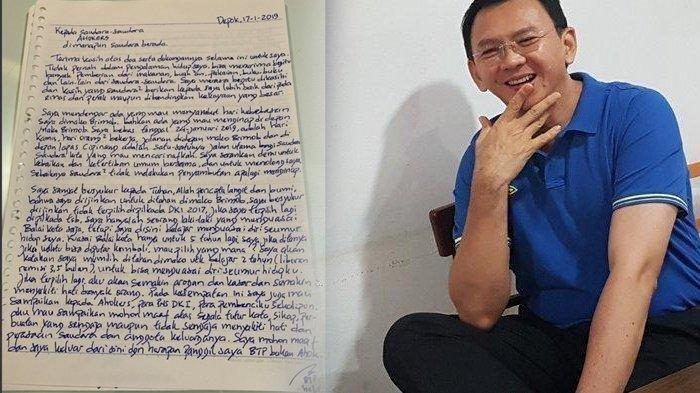 Depok, 17-1-2019
Kepada saudara-saudara
AHOKERS
dimanapun saudara berada.
Terima kasih atas doa serta dukungannya selama ini untuk saya.
Tidak pernah dalam pengalaman hidup saya, bisa menerima begitu
banyak pemberian dari makanan, buah²an, pakaian, buku-buku
dan lain-lain dari saudara-saudara. Saya merasa begitu dikasihi
dan kasih yang saudara² berikan kepada saya lebih baik daripada
emas dan perak maupun dibandingkan kekayaan yang besar.
Saya mendengar ada yang mau menyambut hari kebebasan
saya dimako Brimob. bahkan ada yang mau menginap di depan
Mako Brimob. Saya bebas tanggal 24-januari 2019, adalah Hari
Kamis, hari orang² bekerja, jalanan didepan mako Brimob dan di
depan lapas Cipinang adalah satu-satunya jalan utama bagi saudara
saudara kita yang mau mencari nafkah. Saya sarankan demi untuk
kebaikan dan ketertiban umum bersama, dan untuk menolong saya,
sebaiknya saudara² tidak melakukan penyambutan apalagi menginap.
Saya sangat bersyukur kepada Tuhan, Allah pencipta langit dan bumi,
bahwa saya diijinkan untuk ditahan dimako Brimob. Saya bersyukur
diijinkan tidak terpilih di pilkada DKI 2017, jika saya terpilih lagi
dipilkada tsb, saya hanyalah seorang laki-laki yang menguasai
Balai kota saja, tetapi saya disini belajar menguasai diri seumur
hidup saya. Kuasai Balai kota hanya untuk 5 tahun lagi, saya jika ditanya
jika waktu bisa diputar kembali, mau pilih yang mana? Saya akan
katakan saya memilih ditahan dimako utk belajar 2 tahun (liburan
remisi 3,5 bulan), untuk bisa menguasai diri seumur hidupku.
Jika terpilih lagi aku akan semakin arogan dan kasar dan semakin
menyakiti hati banyak orang. Pada kesempatan ini saya juga mau
sampaikan kepada Ahokers, para PNS DKI, para pembenciku sekalipun,
aku mau sampaikan mohon maaf atas segala tutur kata, sikap, per-
buatan yang sengaja maupun tidak sengaja menyakiti hati dan
perasaan saudara dan anggota keluarganya. Saya mohon maaf
dan saya keluar dari sini dengan harapan panggil saya BTP bukan Ahok.